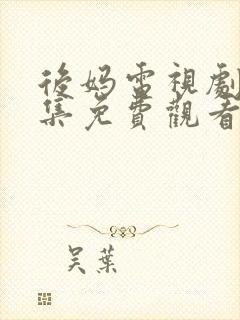 後媽電視劇
集免費觀看
吴葉